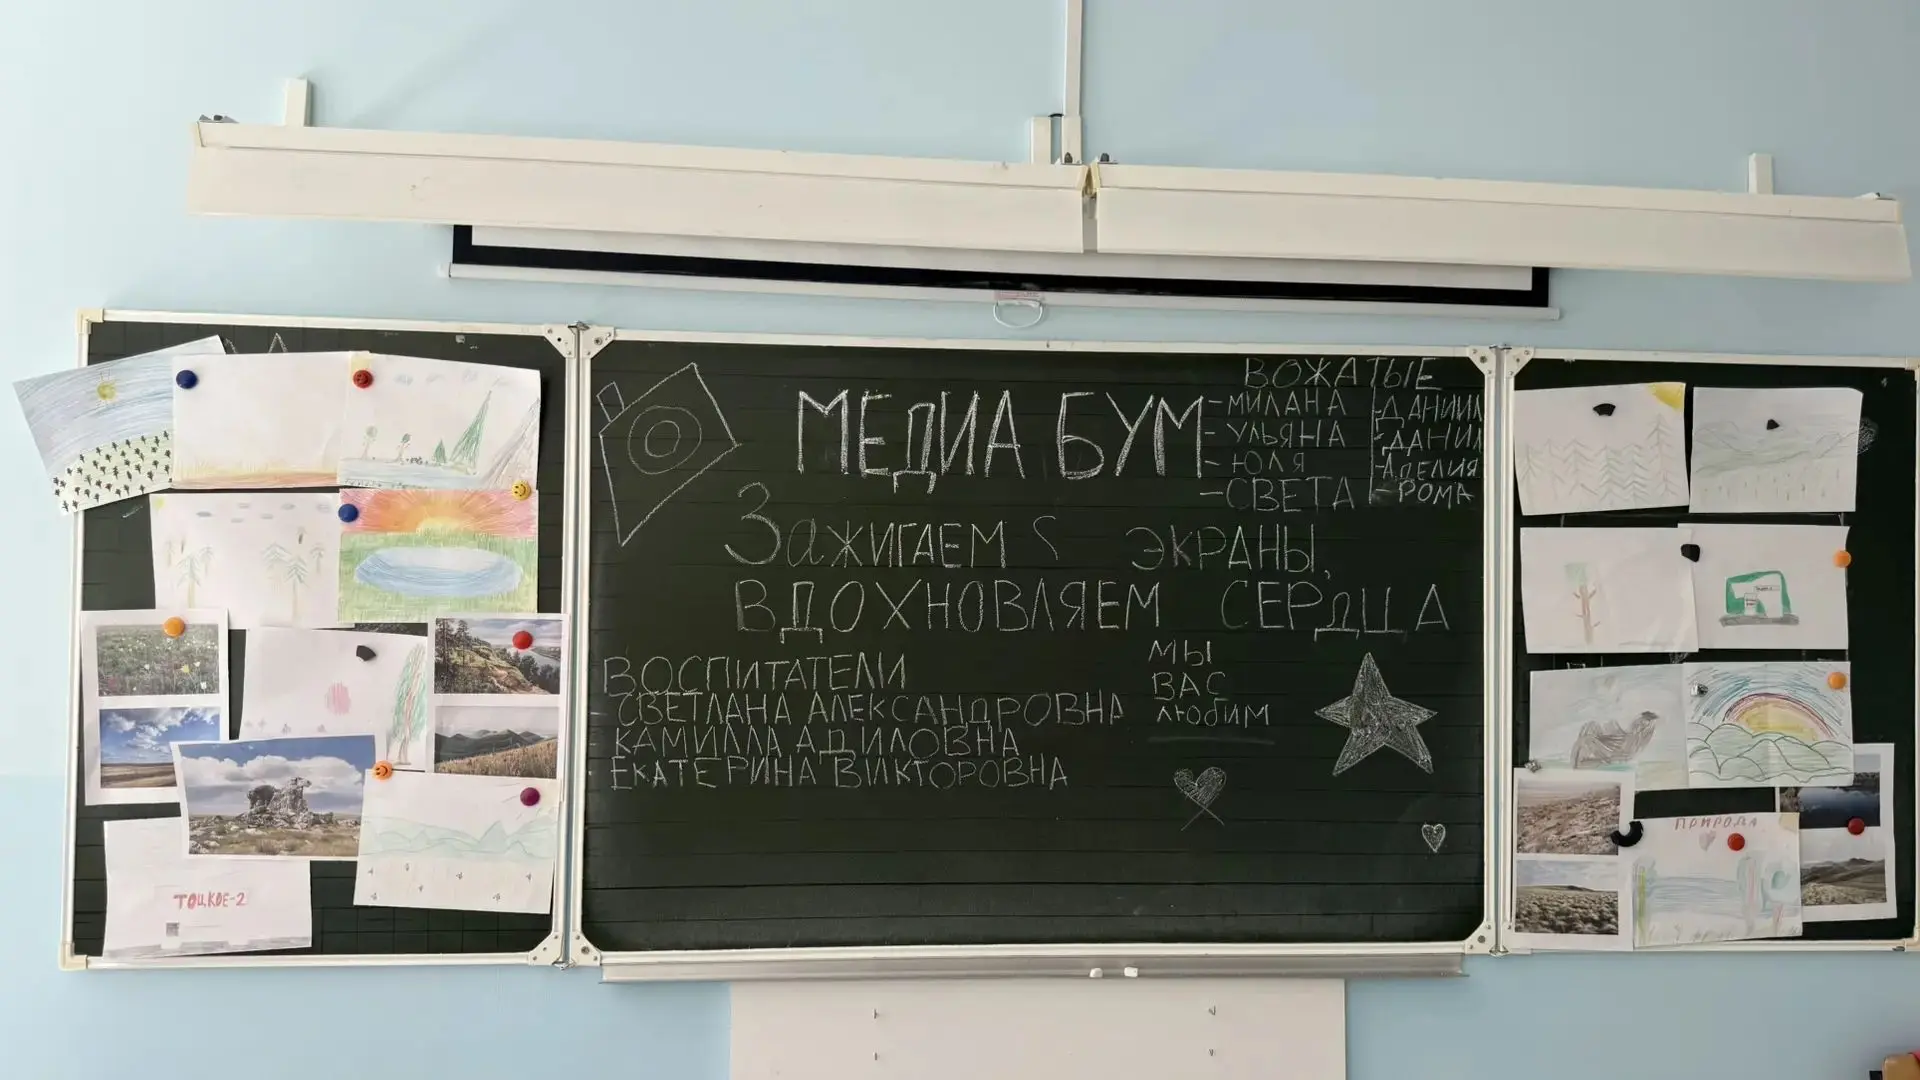 ВОЖАТЫЕ
-МИЛАНА
-УЛЬЯНА
-ЮЛЯ
-СВЕТА
-ДАНИИЛ
-ДАНИЛ
-АДЕЛИЯ
-РОМА
МЕДИА БУМ
ЗаЖИГАЕМ ЭКРАНЫ,
ВДОХНОВЛЯЕМ СЕРДЦА
ВОСПИТАТЕЛИ
- СВЕТЛАНА АЛЕКСАНДРОВНА
- КАМИЛЛА АДИЛОВНА
- ЕКАТЕРИНА ВИКТОРОВНА
МЫ
ВАС
ЛЮБИМ
ТОЦКОЕ-2
ПРИРОДА